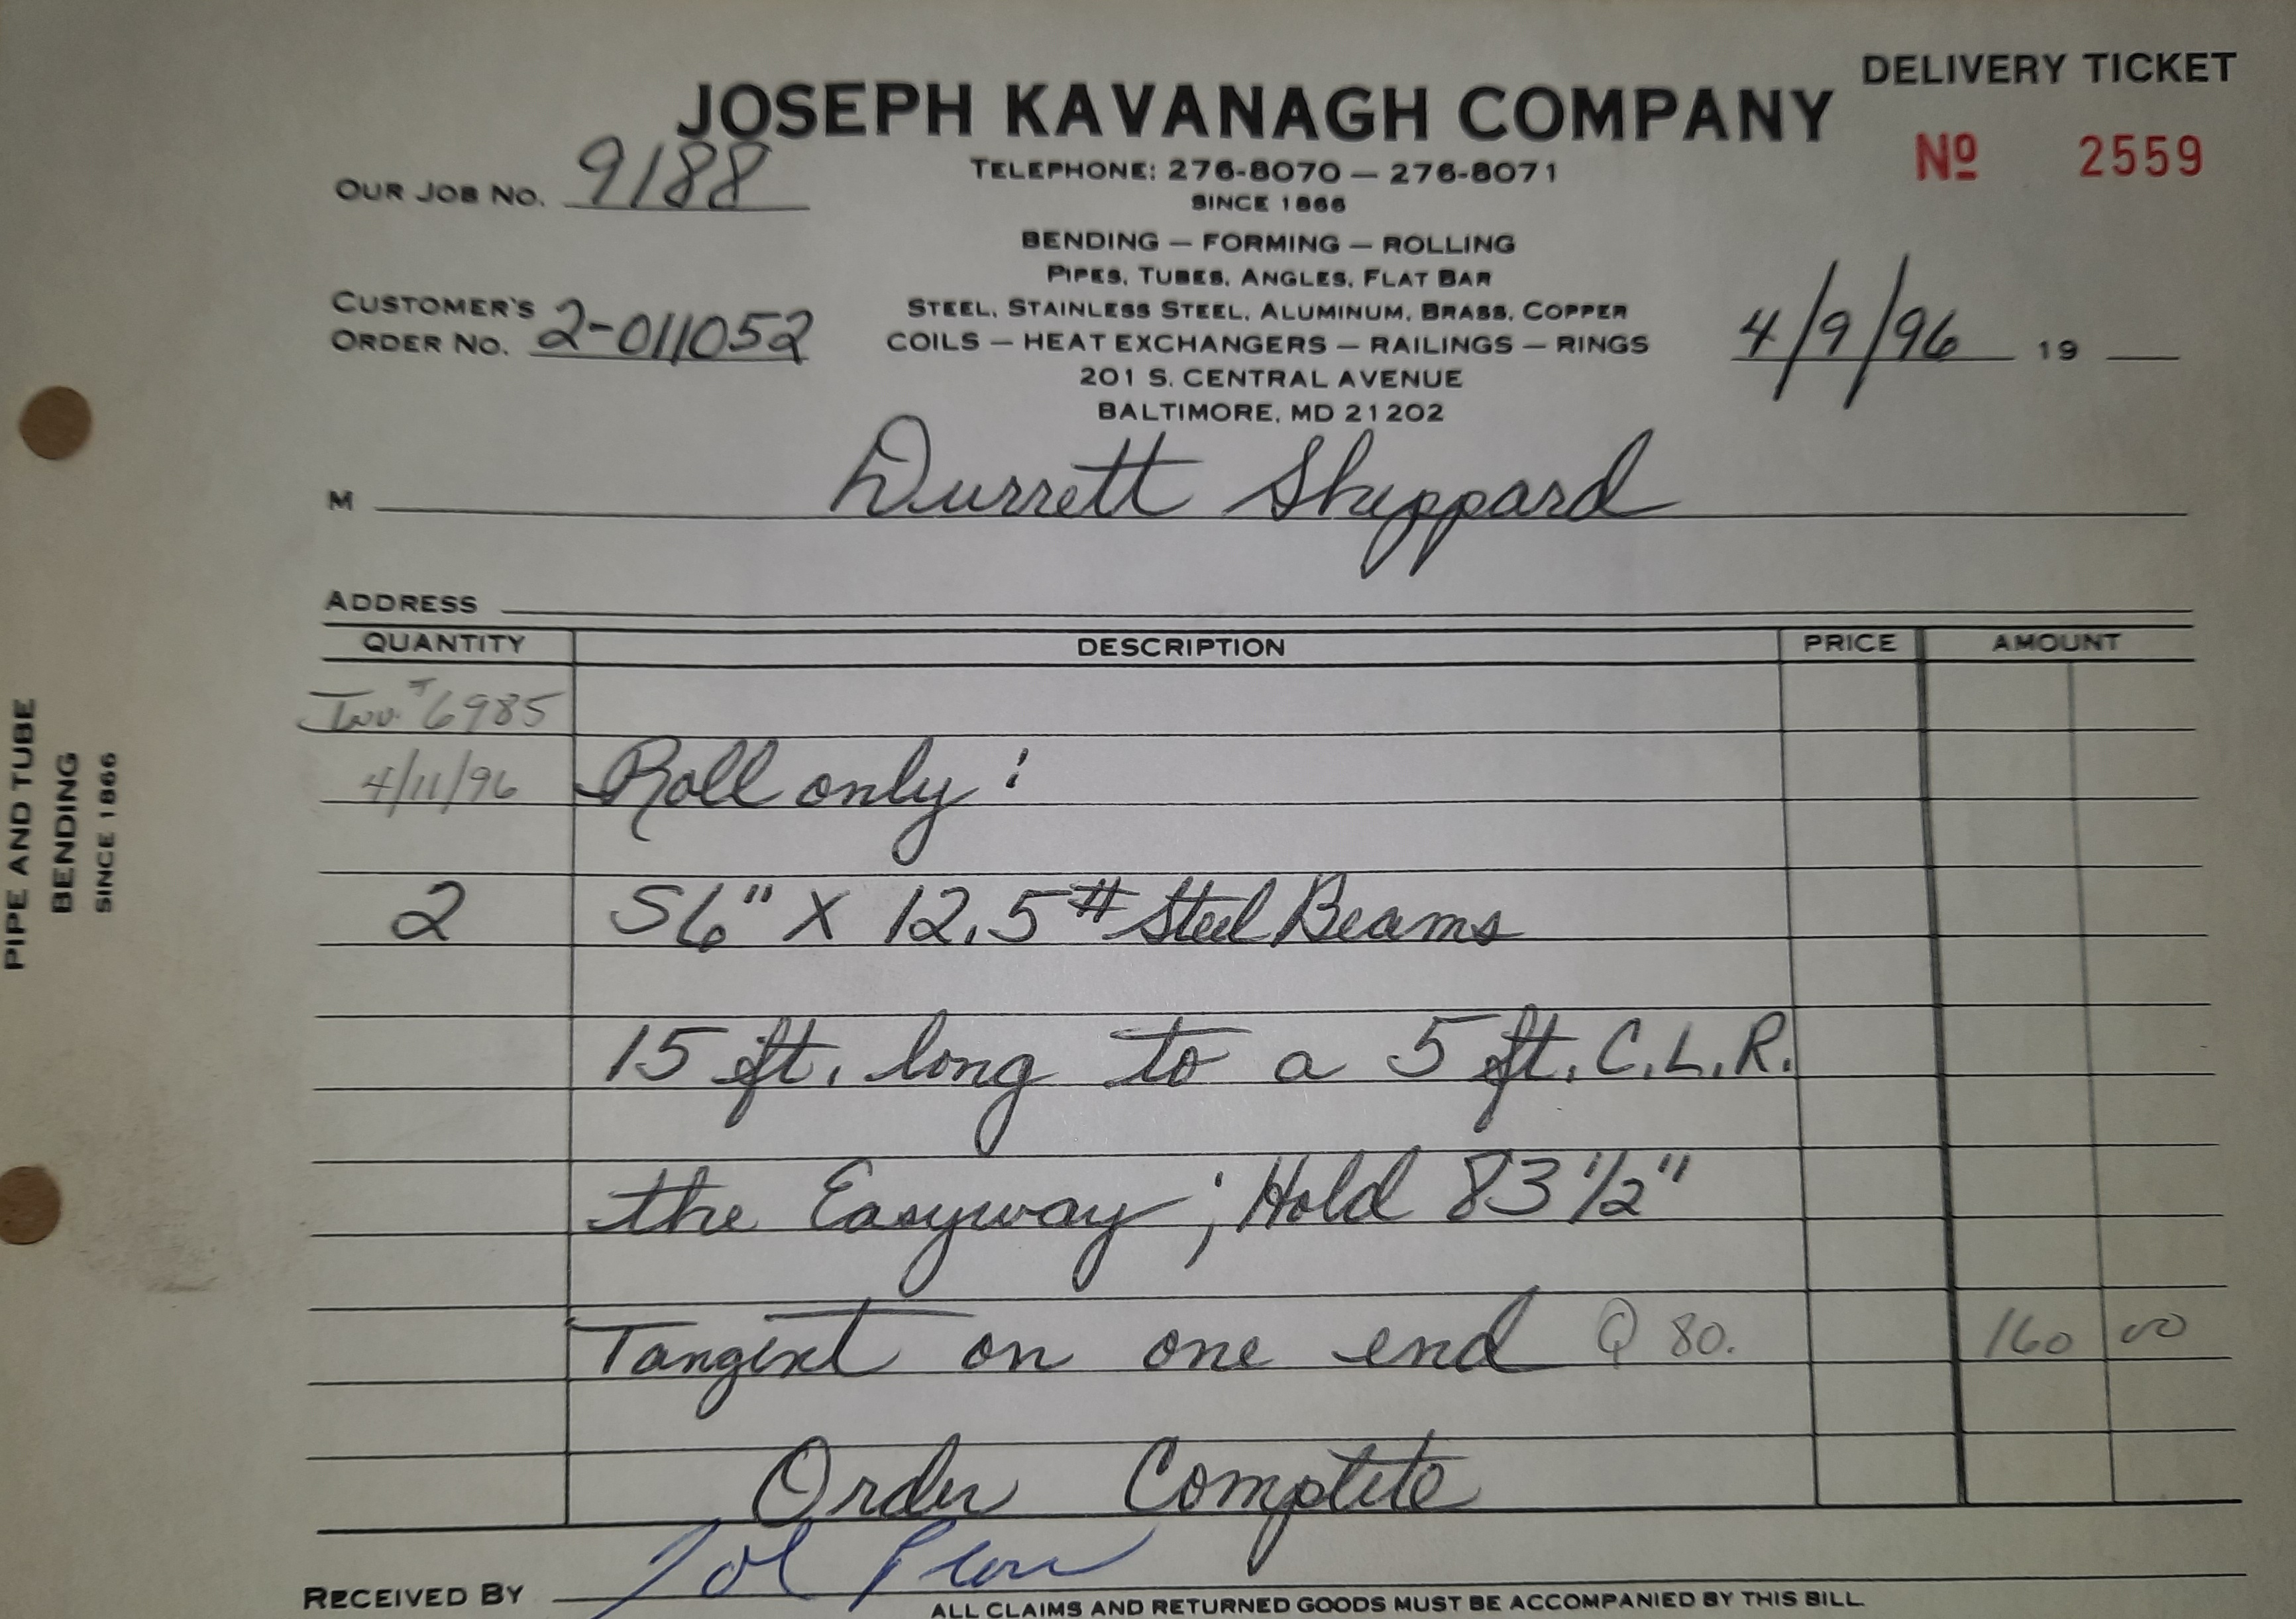 DELIVERY TICKET
JOSEPH KAVANAGH COMPANY
Nº 2559
OUR JOB NO. 9188
TELEPHONE: 276-8070 — 276-8071
SINCE 1866
BENDING — FORMING — ROLLING
PIPES, TUBES, ANGLES, FLAT BAR
CUSTOMER'S
ORDER NO. 2-011052
STEEL, STAINLESS STEEL, ALUMINUM, BRASS, COPPER
COILS — HEAT EXCHANGERS — RAILINGS — RINGS
4/9/96 19
201 S. CENTRAL AVENUE
BALTIMORE, MD 21202
M Durrett Sheppard
ADDRESS
QUANTITY DESCRIPTION PRICE AMOUNT
Inv. # 6985
4/11/96 Roll only:
2 S6" X 12.5# Steel Beams
15 ft. long to a 5 ft. C.L.R.
the Easyway; Hold 83 1/2"
Tangent on one end @ 80. 160 00
Order Complete
RECEIVED BY
ALL CLAIMS AND RETURNED GOODS MUST BE ACCOMPANIED BY THIS BILL
PIPE AND TUBE
BENDING
SINCE 1866